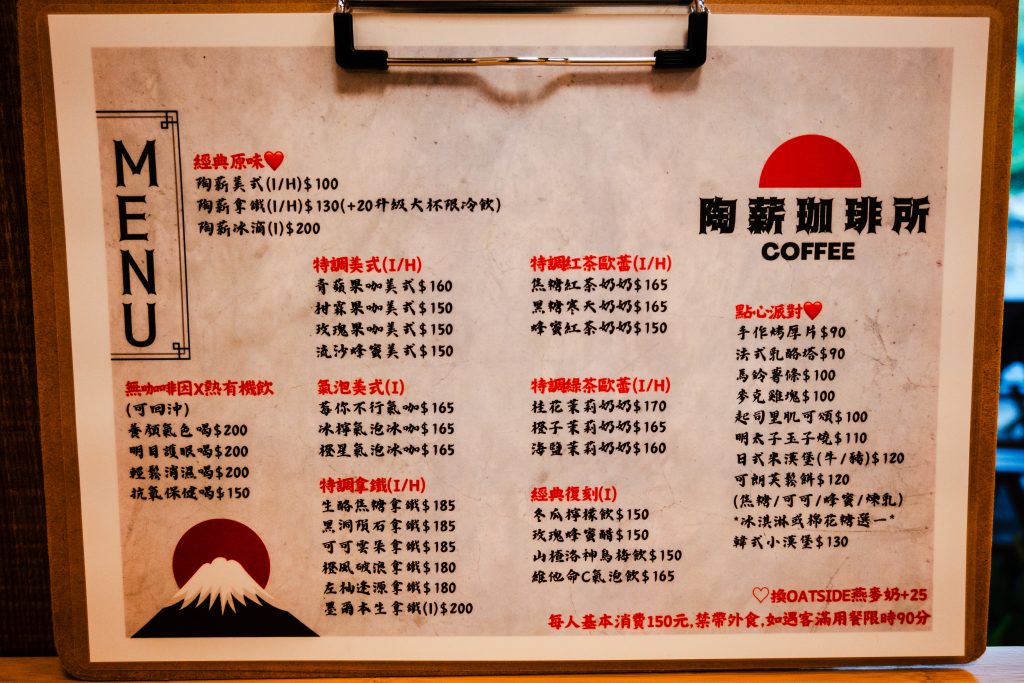 MENU
經典原味❤
陶薪美式(I/H)$100
陶薪拿鐵(I/H)$130(+20升級大杯限冷飲)
陶薪冰滴(I)$200
陶薪珈琲所
COFFEE
特調美式(I/H)
青蘋果咖美式$160
柑霖果咖美式$150
玫瑰果咖美式$150
流沙蜂蜜美式$150
特調紅茶歐蕾(I/H)
焦糖紅茶奶奶$165
黑糖寒天奶奶$165
蜂蜜紅茶奶奶$150
無咖啡因X熱有機飲
(可回沖)
養顏氣色喝$200
明目護眼喝$200
輕鬆消濕喝$200
抗氧保健喝$150
氣泡美式(I)
莓你不行氣咖$165
冰檸氣泡冰咖$165
橙星氣泡冰咖$165
特調綠茶歐蕾(I/H)
桂花茉莉奶奶$170
橙子茉莉奶奶$165
海鹽茉莉奶奶$160
特調拿鐵(I/H)
生酪焦糖拿鐵$185
黑洞隕石拿鐵$185
可可雲朵拿鐵$185
橙風破浪拿鐵$180
左柚逢源拿鐵$180
墨爾本生拿鐵(I)$200
經典復刻(I)
冬瓜檸檬飲$150
玫瑰蜂蜜醋$150
山楂洛神烏梅飲$150
維他命C氣泡飲$165
點心派對❤
手作烤厚片$90
法式乳酪塔$90
馬鈴薯條$100
麥克雞塊$100
起司里肌可頌$100
明太子玉子燒$110
日式米漢堡(牛/豬)$120
可朗芙鬆餅$120
(焦糖/可可/蜂蜜/煉乳)
*冰淇淋或棉花糖選一*
韓式小漢堡$130
♡換OATSIDE燕麥奶+25
每人基本消費150元,禁帶外食,如遇客滿用餐限時90分